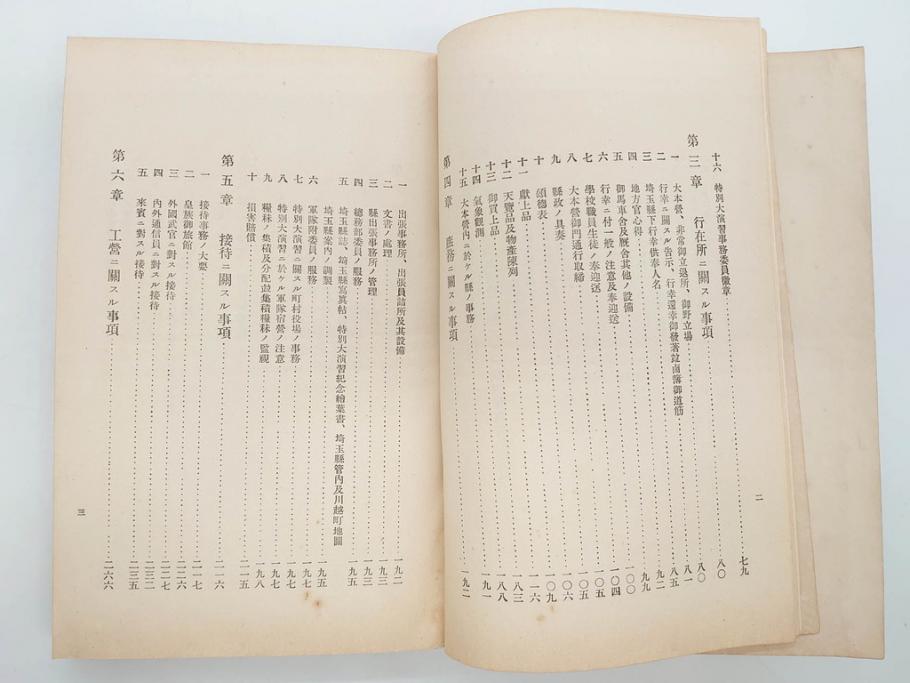 十六 特別大演習事務委員徽章……七九
第三章 行在所ニ關スル事項……八〇
一 大本營、非常御立退所、御野立場……八〇
二 行幸ニ關スル告示、行幸還幸御發著竝鹵簿御道筋……八一
三 埼玉縣下行幸供奉人名……八五
四 地方官心得……九二
五 御馬車舍及厩舍其他ノ設備……九九
六 行幸ニ付一般ノ注意及奉迎送……一〇〇
七 學校職員生徒ノ奉迎送……一〇四
八 大本營御門通行取締……一〇五
九 縣政ノ具奏……一〇六
十 頌德表……一〇九
十一 獻上品……一一六
十二 天覽品及物產陳列……一八三
十三 御買上品……一八八
十四 氣象觀測……一九一
十五 大本營內ニ於ケル縣ノ事務……一九二
第四章 務ニ關スル事項
二
一 出張事務所、出張員詰所及其設備……一九二
二 文書ノ處理……一九三
三 縣出張事務所ノ管理……一九三
四 總務部委員ノ服務……一九五
五 埼玉縣誌、埼玉縣寫眞帖、特別大演習紀念繪葉書、埼玉縣管內及川越町地圖
埼玉縣案內ノ調製……一九五
六 軍隊附委員ノ服務……一九七
七 特別大演習ニ關スル町村役場ノ事務……一九七
八 特別大演習ニ於ケル軍隊宿營ノ注意……一九七
九 糧秣ノ集積及分配竝集積糧秣ノ監視……一九八
十 損害賠償……二一五
第五章 接待ニ關スル事項……二一六
一 接待事務ノ大要……二一七
二 皇族御旅館……二二六
三 外國武官ニ對スル接待……二二七
四 內外通信員ニ對スル接待……二三二
五 來賓ニ對スル接待……二三五
第六章 工營ニ關スル事項……二六六
三